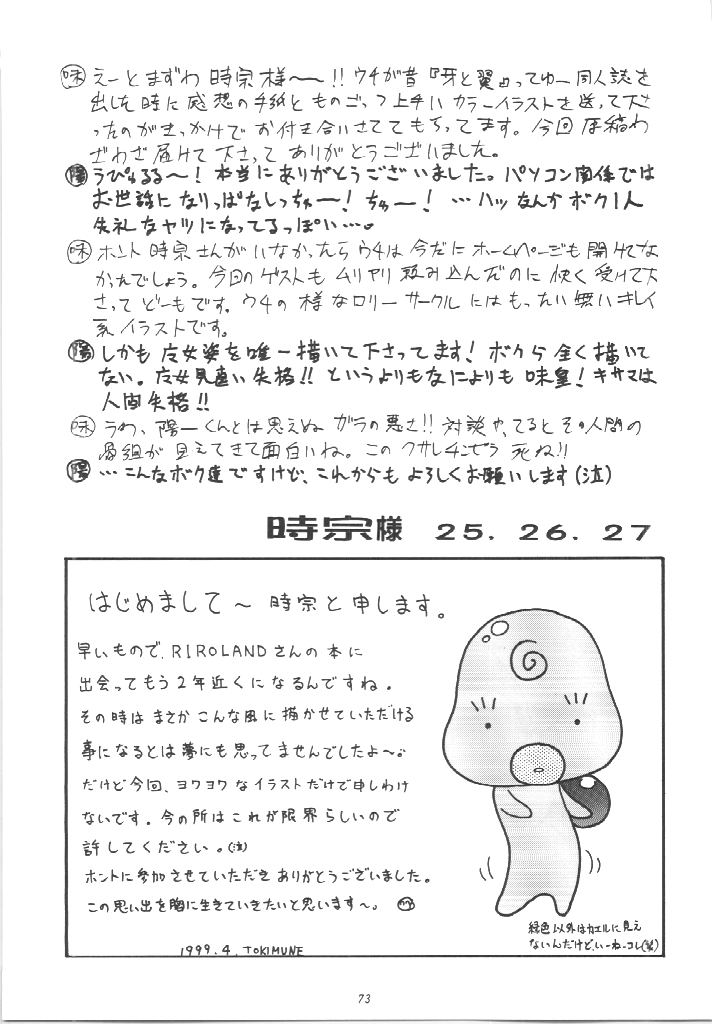 味 えーとまずわ 時宗様〜〜!! ウチが昔『牙と翼』ってゆー同人誌を
出した時に感想の手紙とものごっつ上手いカラーイラストを送って下さ
ったのがきっかけでお付き合いさせてもらってます。今回原稿わ
ざわざ届けて下さって ありがとうございました。
陽 うぴゅるる〜! 本当にありがとうございました。パソコン関係では
お世話になりっぱなしっちゅー! ちゅー! …ハッなんかボク1人
失礼なヤツになってるっぽい…。
味 ホント 時宗さんがいなかったらウチは今だにホームページも開けてな
かったでしょう。今回のゲストもムリヤリ頼み込んだのに快く受けて下
さって どーもです。ウチの様なロリーサークルにはもったい無いキレイ
系イラストです。
陽 しかも 女姿を唯一描いて下さってます! ボクら全く描いて
ない。女見直い失格!! というよりもなによりも 味皇! キサマは
人間失格!!
味 うわ、陽一くんとは思えぬ ガラの悪さ!! 対談やってるとその人間の
番組が見えてきて面白いね。このクサレ 死ね!!
陽 …こんなボク達ですけど、これからも よろしくお願いします(泣)
時宗様 25. 26. 27
はじめまして〜 時宗と申します。
早いもので、RIROLANDさんの本に
出会ってもう2年近くになるんですね。
その時は まさかこんな風に描かせていただける
事になるとは夢にも思ってませんでしたよ〜。
だけど今回、ヨワヨワなイラストだけで申しわけ
ないです。今の所はこれが限界らしいので
許してください。(泣)
ホントに参加させていただき ありがとうございました。
この思い出を胸に生きていきたいと思います〜。
1999.4. TOKIMUNE
緑色以外はカエルに見え
ないんだけど、いーね、コレ(笑)
73